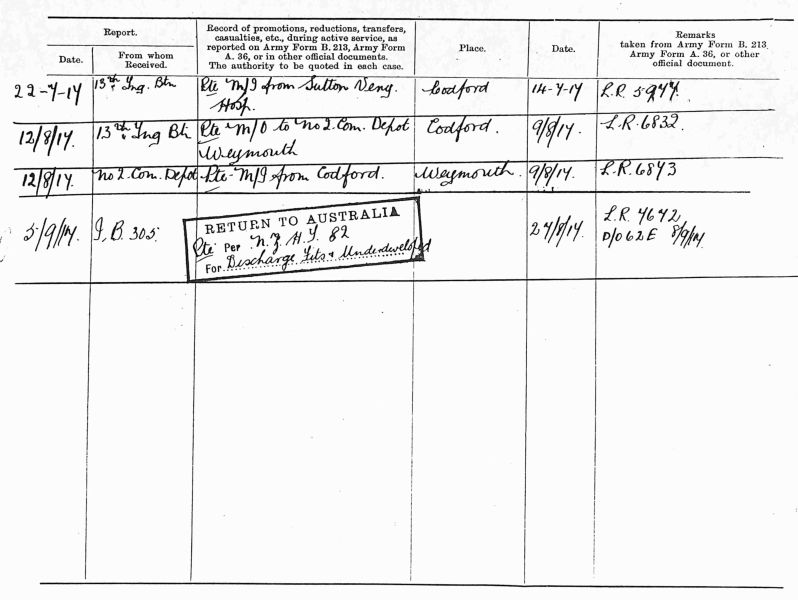 Report.
Date.
From whom
Received.
Record of promotions, reductions, transfers,
casualties, etc., during active service, as
reported on Army Form B. 213, Army Form
A. 36, or in other official documents.
The authority to be quoted in each case.
Place.
Date.
Remarks
taken from Army Form B. 213,
Army Form A. 36, or other
official document.
22-7-17 13th Trg. Btn Pte M/I from Sutton Veny. Codford 14-7-17 L.R. 5977.
Hosp.
12/8/17. 13th Trg Btn Pte M/O to No 2 Com. Depot Codford. 9/8/17. L.R. 6832.
Weymouth
12/8/17. No 2 Com. Depot Pte M/I from Codford. Weymouth. 9/8/17. L.R. 6873
5/9/17. I.B. 305. RETURN TO AUSTRALIA 27/8/17. L.R. 7672
Pte Per H.T. 82 D/062E 8/9/17
For Discharge Fits & Underdeveloped